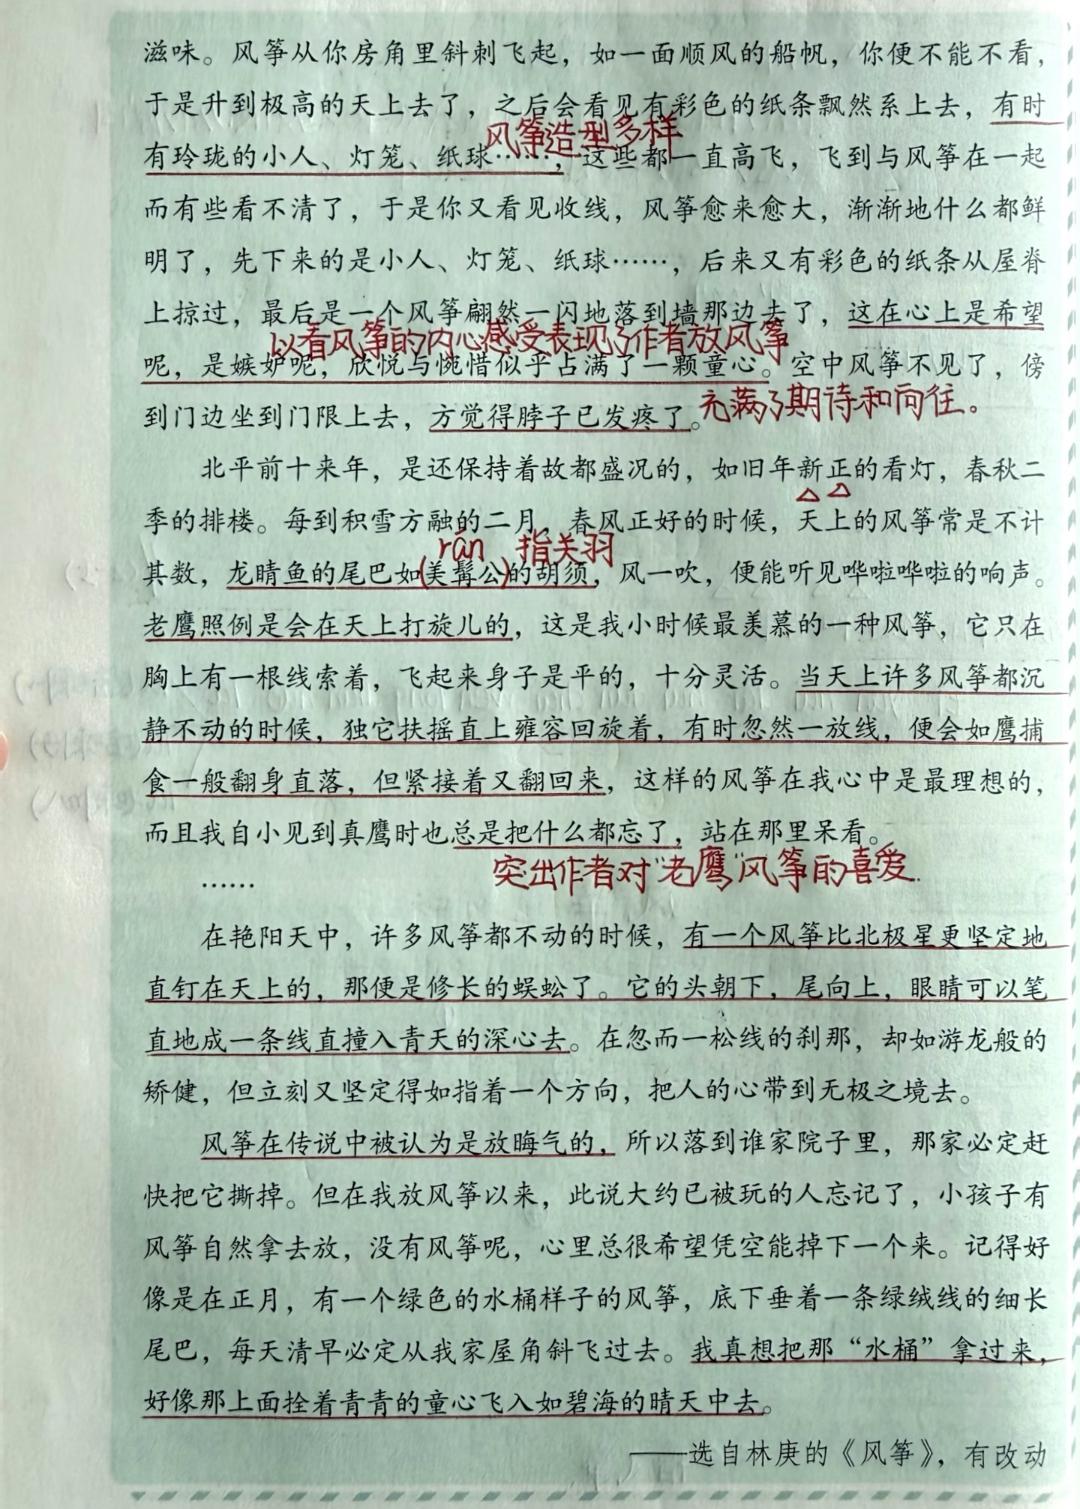 滋味。风筝从你房角里斜刺飞起，如一面顺风的船帆，你便不能不看，
于是升到极高的天上去了，之后会看见有彩色的纸条飘然系上去，有时
风筝造型多样
有玲珑的小人、灯笼、纸球……，这些都一直高飞，飞到与风筝在一起
而有些看不清了，于是你又看见收线，风筝愈来愈大，渐渐地什么都鲜
明了，先下来的是小人、灯笼、纸球……，后来又有彩色的纸条从屋脊
上掠过，最后是一个风筝翩然一闪地落到墙那边去了，这在心上是希望
以看风筝的内心感受表现了作者放风筝
呢，是嫉妒呢，欣悦与惋惜似乎占满了一颗童心。空中风筝不见了，傍
充满了期待和向往。
到门边坐到门限上去，方觉得脖子已发疼了。
北平前十来年，是还保持着故都盛况的，如旧年新正的看灯，春秋二
季的排楼。每到积雪方融的二月，春风正好的时候，天上的风筝常是不计
rán 指关羽
其数，龙睛鱼的尾巴如(美髯公)的胡须，风一吹，便能听见哗啦哗啦的响声。
老鹰照例是会在天上打旋儿的，这是我小时候最羡慕的一种风筝，它只在
胸上有一根线索着，飞起来身子是平的，十分灵活。当天上许多风筝都沉
静不动的时候，独它扶摇直上雍容回旋着，有时忽然一放线，便会如鹰捕
食一般翻身直落，但紧接着又翻回来，这样的风筝在我心中是最理想的，
而且我自小见到真鹰时也总是把什么都忘了，站在那里呆看。
突出作者对“老鹰”风筝的喜爱.
……
在艳阳天中，许多风筝都不动的时候，有一个风筝比北极星更坚定地
直钉在天上的，那便是修长的蜈蚣了。它的头朝下，尾向上，眼睛可以笔
直地成一条线直撞入青天的深心去。在忽而一松线的刹那，却如游龙般的
矫健，但立刻又坚定得如指着一个方向，把人的心带到无极之境去。
风筝在传说中被认为是放晦气的，所以落到谁家院子里，那家必定赶
快把它撕掉。但在我放风筝以来，此说大约已被玩的人忘记了，小孩子有
风筝自然拿去放，没有风筝呢，心里总很希望凭空能掉下一个来。记得好
像是在正月，有一个绿色的水桶样子的风筝，底下垂着一条绿绒线的细长
尾巴，每天清早必定从我家屋角斜飞过去。我真想把那“水桶”拿过来，
好像那上面拴着青青的童心飞入如碧海的晴天中去。
——选自林庚的《风筝》，有改动